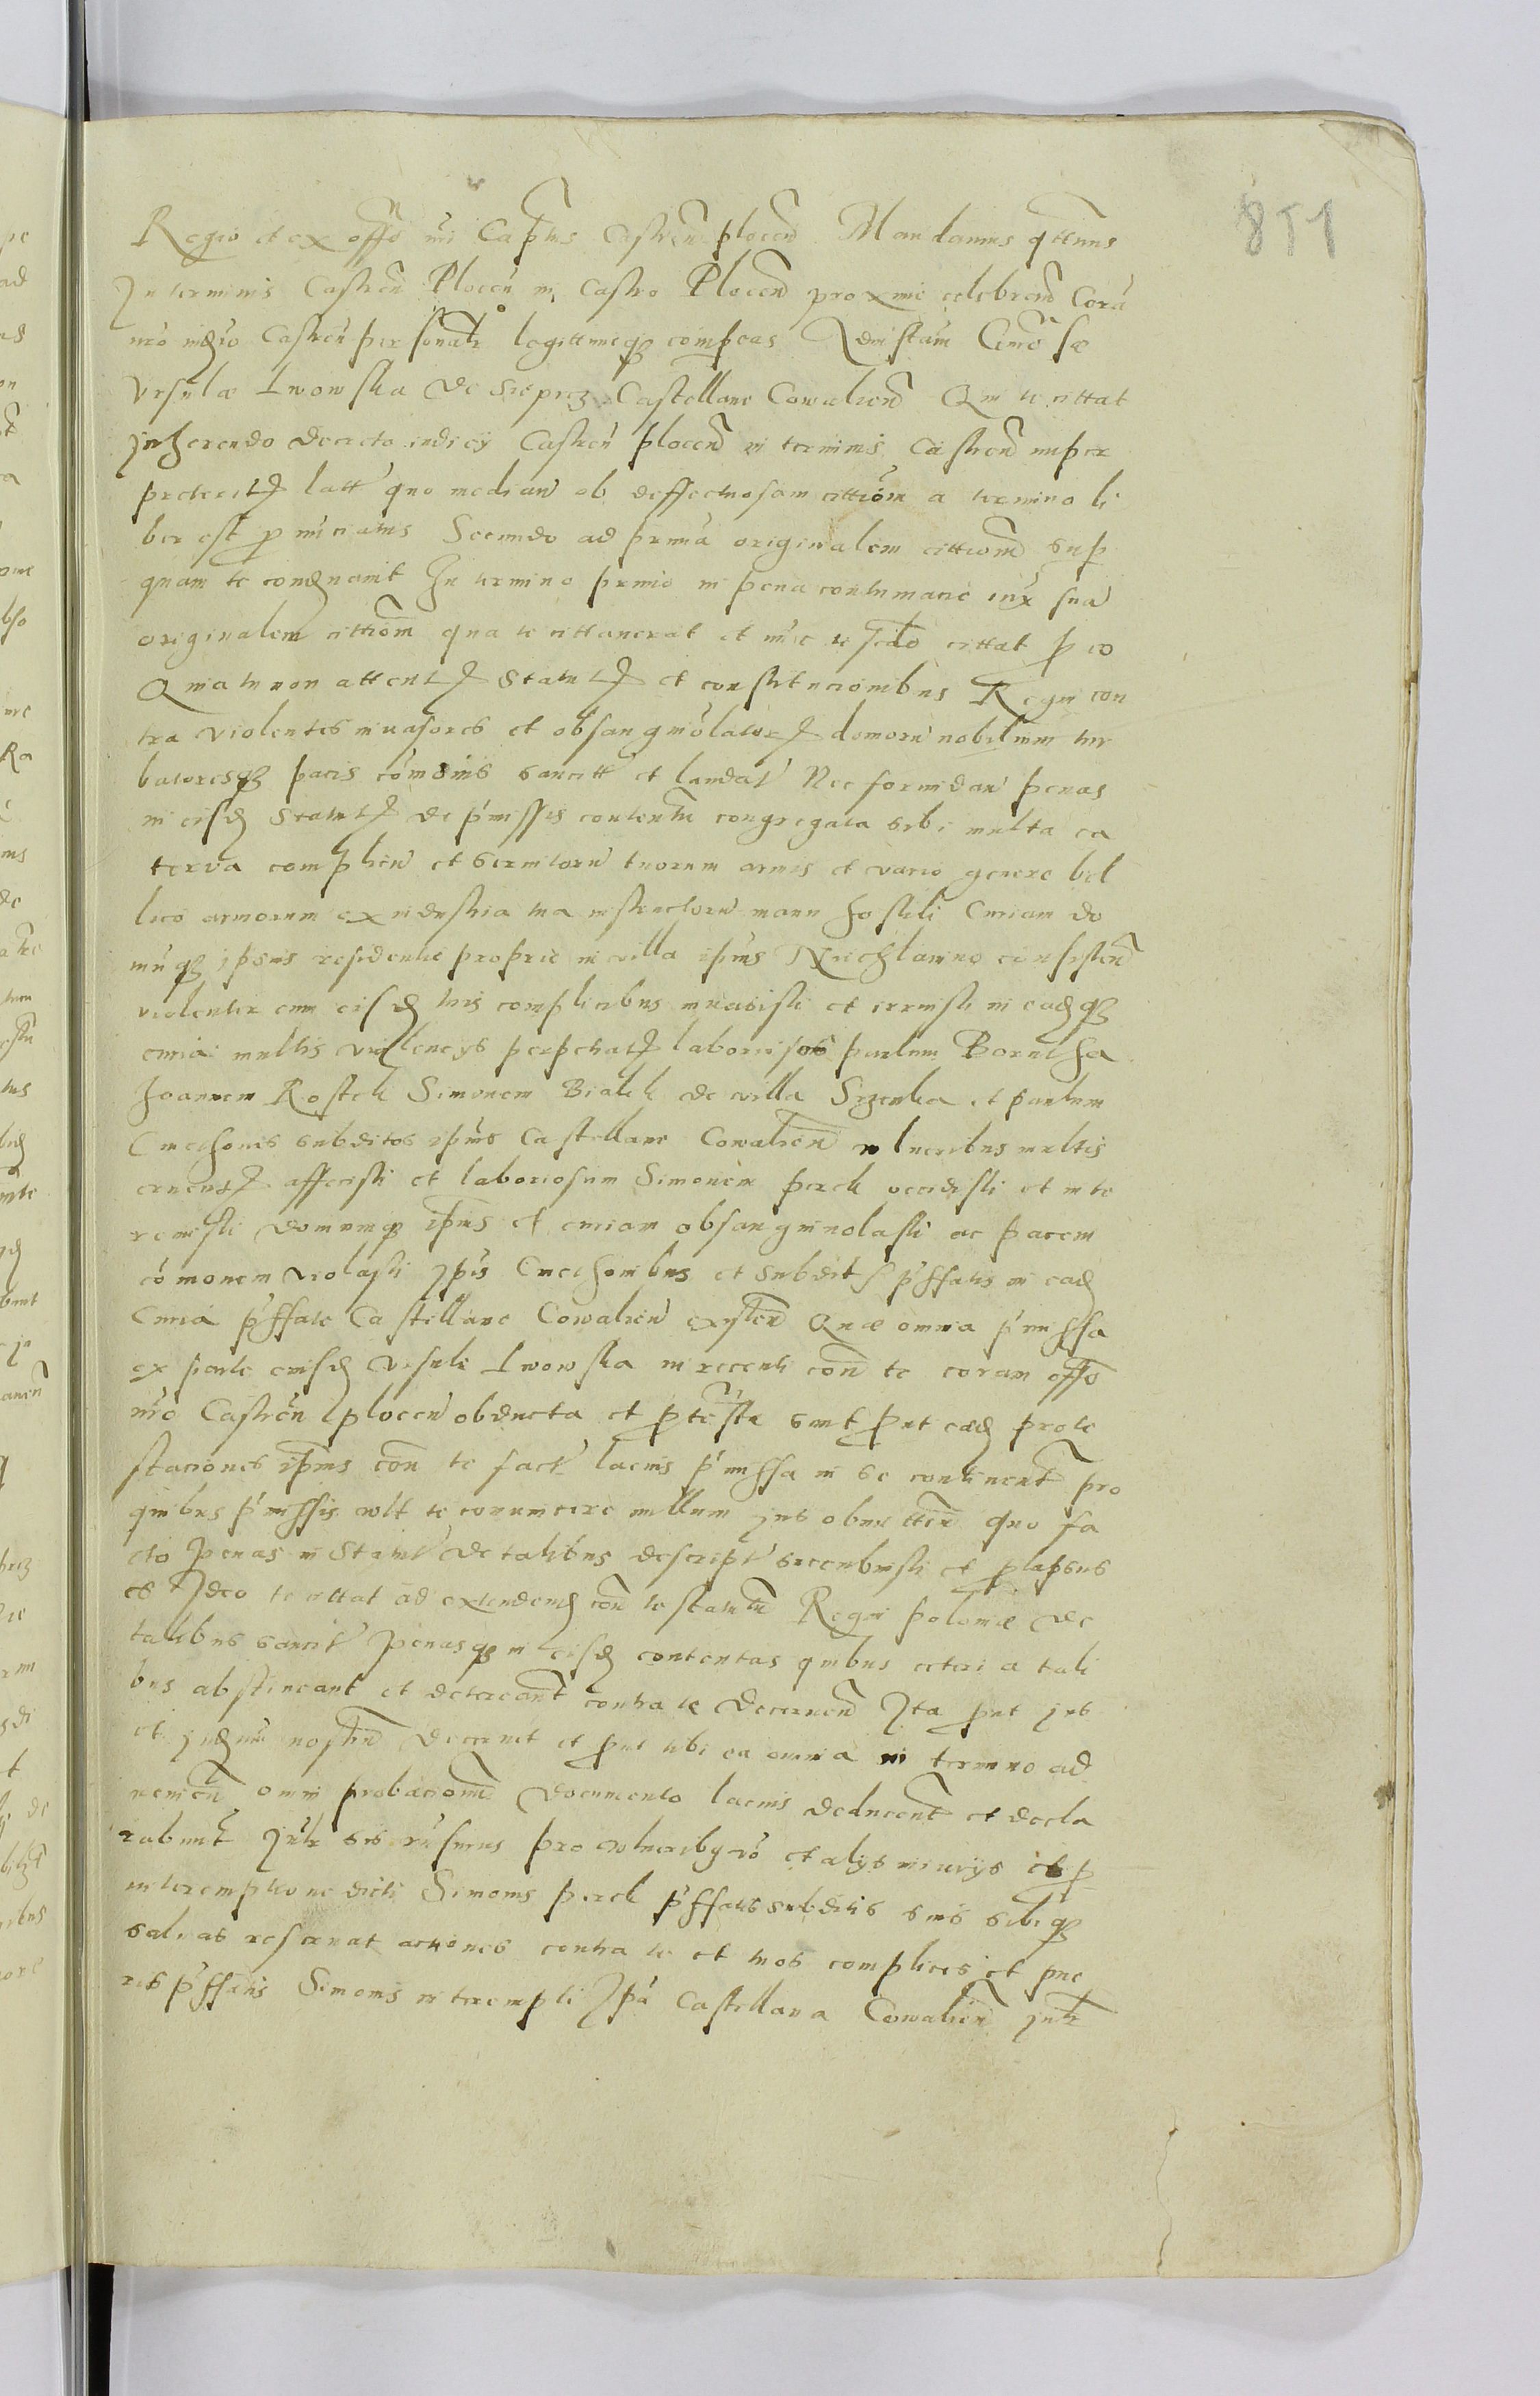 851
Regio et ex offo nri Captus Castren plocen Mandamus qttenus
In terminis Castren Plocen in Castro Plocen proxime celebren Corā
nro iudō Castren personalr legittimeqz compeas Ad instam Genosae
Vrsulae Lwowska de Sieprcz Castellane Cowalien Que te cittat
inherendo decreto iudicij Castren plocen in terminis Castren nuper
preterit latt quo median ob deffectuosam cittiom a termino li
ber est pnuciatus Secundo ad primā originalem cittiom sup
quam te condenauit In termino primo in pena contumacie iux suā
originalem cittiom qua te cittauerat et nuc te scdo cittat p eo
Quia tu non attent Statut et constitucionibus Regni con
tra violentes inuasores et obsanguiolator domoru nobilium tur
batoresqz pacis comunis sancitt et laudat Nec formidan penas
in eisd Statut de pmissis contentas congregata tibi multa ca
terva complicu et seruitoru tuorum armis et vario genere bel
lico armorum ex industria tua instructoru manu hostili Curiam do
muqz ipsius residentie proprie in villa ipius consisten
violenter cum eisd tuis complicibus inuasisti et irruisti in eadqz
curia multis violencijs perpetrat laboriosos paulum
Joannem Rostek Simonem Bialek de villa et paulum
Cmethones subditos ipius Castellane Cowalien vulneribus multis
cruent affecisti et laboriosum Simonem perek occidisti et inte
remisti domumqz ipius et curiam obsanguinolasti ac pacem
comonem violasti ipis Cmethonibus et subdit pffatis in ead
Curia pffate Castellane Cowalien existen Quae omnia pmissa
ex parte eiusd Vrsule Lwowska in recenti con te coram offo
nro Castren plocen obducta et ptesta sunt put eaed prote
staciones ipius con te fact lacius pmissa in se continent pro
quibus pmissis volt te conuincere nullum ius obmitten quo fa
cto penas in Statut de talibus descript succubuisti et plapsus
es Ideo te cittat ad extendend con te statutu Regni poloniae de
talibus sancit penasqz in eisd contentas quibus ceteri a tali
bus abstineant et deterreant contra te decernen Ita put ius
et iudm nostru decernet et put tibi ea omnia in termino ad
uenien omni probacionu documento lacius deducent et decla
rabunt
interemptione dicti Simonis perek pffatis subditis suis sibiqz
saluas reseruat actiones contra te et tuos complices et pue
ris pffatis Simonis interempti Ipā Castellana Cowalien